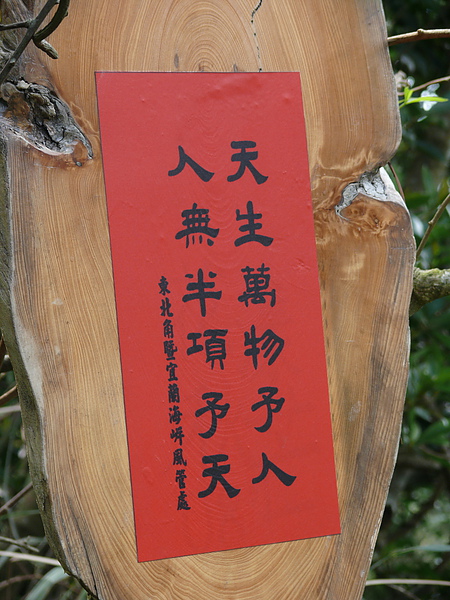 天生萬物予人
人無半項予天
東北角暨宜蘭海岸風管處